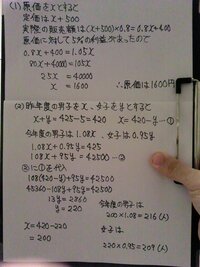 (1) 原価をxとすると
定価はx+500
実際の販売額は(x+500)×0.8=0.8x+400
原価に対して5%の利益があったので
0.8x+400=1.05x
80x+40000=105x
25x=40000
x=1600 ∴原価は1600円
(2) 昨年度の男子をx、女子をyとすると
x+y=425-5=420 x=420-y—①
今年度の男子は1.08x、女子は0.95y
1.08x+0.95y=425
108x+95y=42500—②
②に①を代入
108(420-y)+95y=42500
45360-108y+95y=42500
13y=2860
y=220
x=420-220
=200
今年度の男子は
200×1.08=216(人)
女子は
220×0.95=209(人)